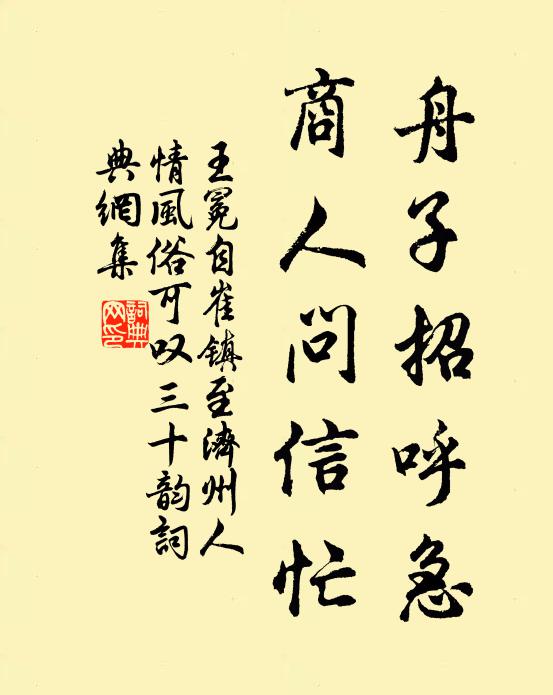 舟子招呼急
商人問信忙
王冕自崔镇至濟州人
情風俗可叹三十韵詞
典網集
詞典
网印